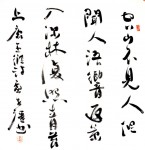 空山不見人但
聞人語響返景
入深林復照青苔
上唐王維詩